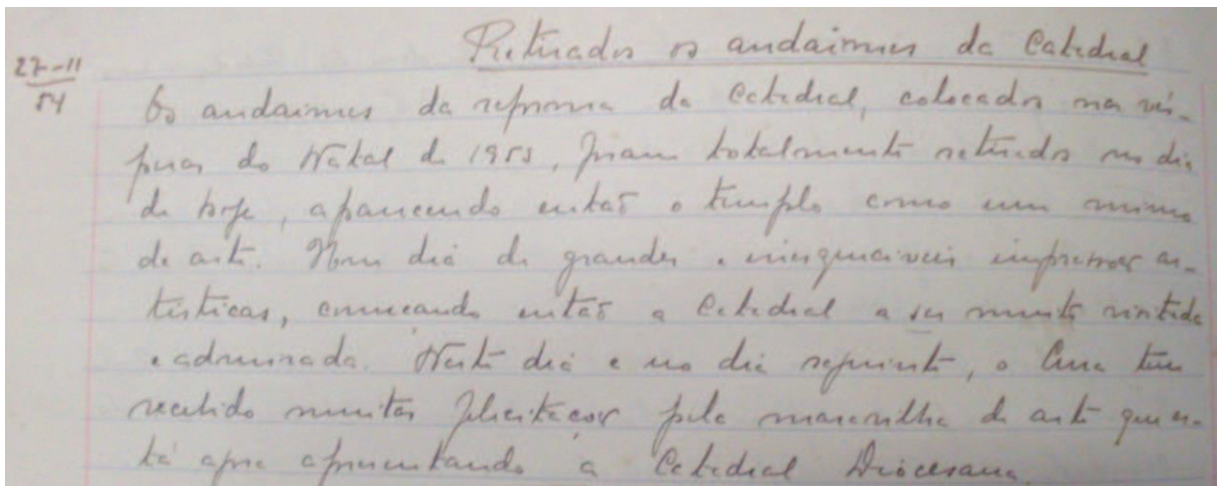 27-11
54
Retirados os andaimes da Catedral
Os andaimes da reforma da Catedral, colocados nas vés-
peras do Natal de 1953, foram totalmente retirados no dia
de hoje, aparecendo então o templo como um mimo
de arte. Hum dia de grandes e inesqueciveis impressões ar-
tisticas, começando então a Catedral a ser muito visitada
e admirada. Neste dia e no dia seguinte, o Cura tem
recebido muitas felicitações pela maravilha de arte que es-
tá agora apresentando a Catedral Diocesana.